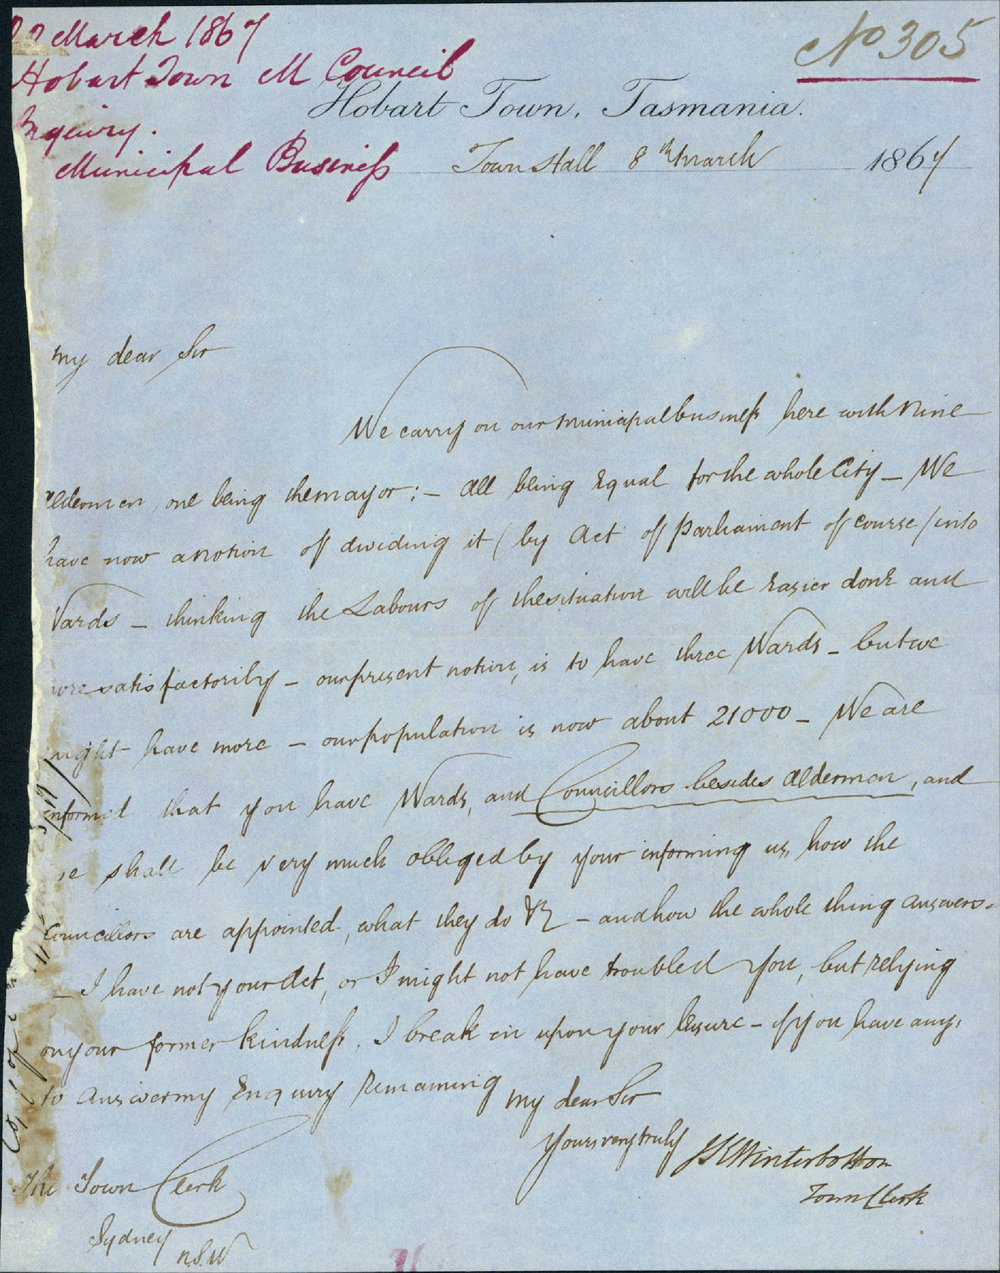 March 1867
Hobart Town M Council
Nº 305
Hobart Town, Tasmania.
Inquiry.
Municipal Business
Town Hall 8th March 1867
My dear Sir
We carry on our Municipal business here with Nine
Aldermen, one being the mayor; — all being Equal for the whole City — We
have now a notion of dividing it (by Act of Parliament of course) into
Wards — thinking the Labours of the situation will be Easier done and
more satisfactorily — our present notion, is to have three Wards — but we
might have more — our population is now about 21000 — We are
informed that you have Wards, and Councillors besides Aldermen, and
we shall be very much obliged by your informing us, how the
Councillors are appointed, what they do &c — and how the whole thing answers.
— I have not your Act, or I might not have troubled you, but relying
on your former kindness, I break in upon your leisure — if you have any,
to answer my Enquiry remaining
My dear Sir
Yours very truly
Winterbottom
Town Clerk
The Town Clerk
Sydney
N.S.W